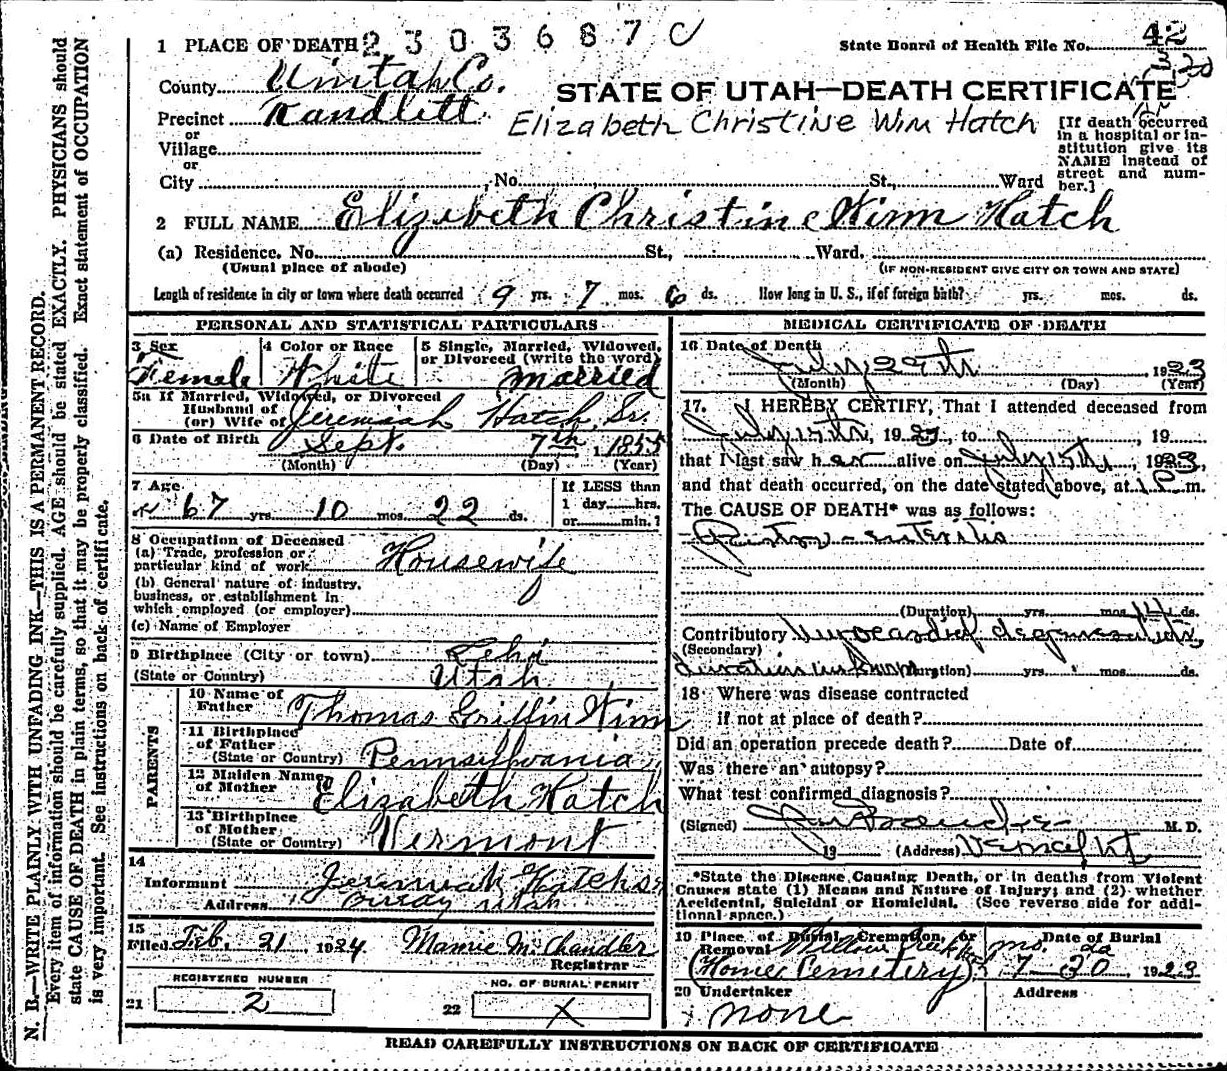 1 PLACE OF DEATH 2 3 0 3 6 8 7 C
State Board of Health File No. 42
County Uintah Co.
STATE OF UTAH—DEATH CERTIFICATE
Precinct Randlett
Elizabeth Christine Winn Hatch
[If death occurred in a hospital or institution give its NAME instead of street and number.]
or
Village
or
City , No. St., Ward
2 FULL NAME Elizabeth Christine Winn Hatch
(a) Residence. No. St., Ward.
(Usual place of abode) (IF NON-RESIDENT GIVE CITY OR TOWN AND STATE)
Length of residence in city or town where death occurred 9 yrs. 7 mos. 6 ds. How long in U. S., if of foreign birth? yrs. mos. ds.
PERSONAL AND STATISTICAL PARTICULARS
3 Sex 4 Color or Race 5 Single, Married, Widowed,
or Divorced (write the word)
Female White married
5a If Married, Widowed, or Divorced
Husband of
(or) Wife of Jeremiah Hatch, Sr.
6 Date of Birth Sept. 7th 1855
(Month) (Day) (Year)
7 Age If LESS than
1 day hrs.
67 yrs. 10 mos. 22 ds. or min.?
8 Occupation of Deceased
(a) Trade, profession or
particular kind of work Housewife
(b) General nature of industry,
business, or establishment in
which employed (or employer)
(c) Name of Employer
9 Birthplace (City or town) Lehi
(State or Country) Utah
PARENTS
10 Name of
Father Thomas Griffin Winn
11 Birthplace
of Father
(State or Country) Pennsylvania
12 Maiden Name
of Mother Elizabeth Hatch
13 Birthplace
of Mother
(State or Country) Vermont
14
Informant Jeremiah Hatch Sr
Address Ouray Utah
15
Filed Feb. 21 1924 Mamie M. Chandler
Registrar
REGISTERED NUMBER NO. OF BURIAL PERMIT
21 2 22 X
MEDICAL CERTIFICATE OF DEATH
16 Date of Death
July 29th , 1923
(Month) (Day) (Year)
17. I HEREBY CERTIFY, That I attended deceased from
July 15th, 1923, to , 19
that I last saw her alive on July 15th, 1923,
and that death occurred, on the date stated above, at 1 P.m.
The CAUSE OF DEATH* was as follows:
Gastro-enteritis
(Duration) yrs. mos. 14 ds.
Contributory Myocardial degeneration,
(Secondary)
duration unknown (Duration) yrs. mos. ds.
18 Where was disease contracted
if not at place of death?
Did an operation precede death? Date of
Was there an autopsy?
What test confirmed diagnosis?
(Signed) M. D.
19 (Address)
*State the Disease Causing Death, or in deaths from Violent
Causes state (1) Means and Nature of Injury; and (2) whether
Accidental, Suicidal or Homicidal. (See reverse side for addi-
tional space.)
19 Place of Burial, Cremation, or Removal Date of Burial
Willow Creek mo. da
(Home Cemetery) 7 - 30 , 1923
20 Undertaker Address
none
READ CAREFULLY INSTRUCTIONS ON BACK OF CERTIFICATE
N. B.—WRITE PLAINLY WITH UNFADING INK—THIS IS A PERMANENT RECORD.
Every item of information should be carefully supplied. AGE should be stated EXACTLY. PHYSICIANS should
state CAUSE OF DEATH in plain terms, so that it may be properly classified. Exact statement of OCCUPATION
is very important. See instructions on back of certificate.